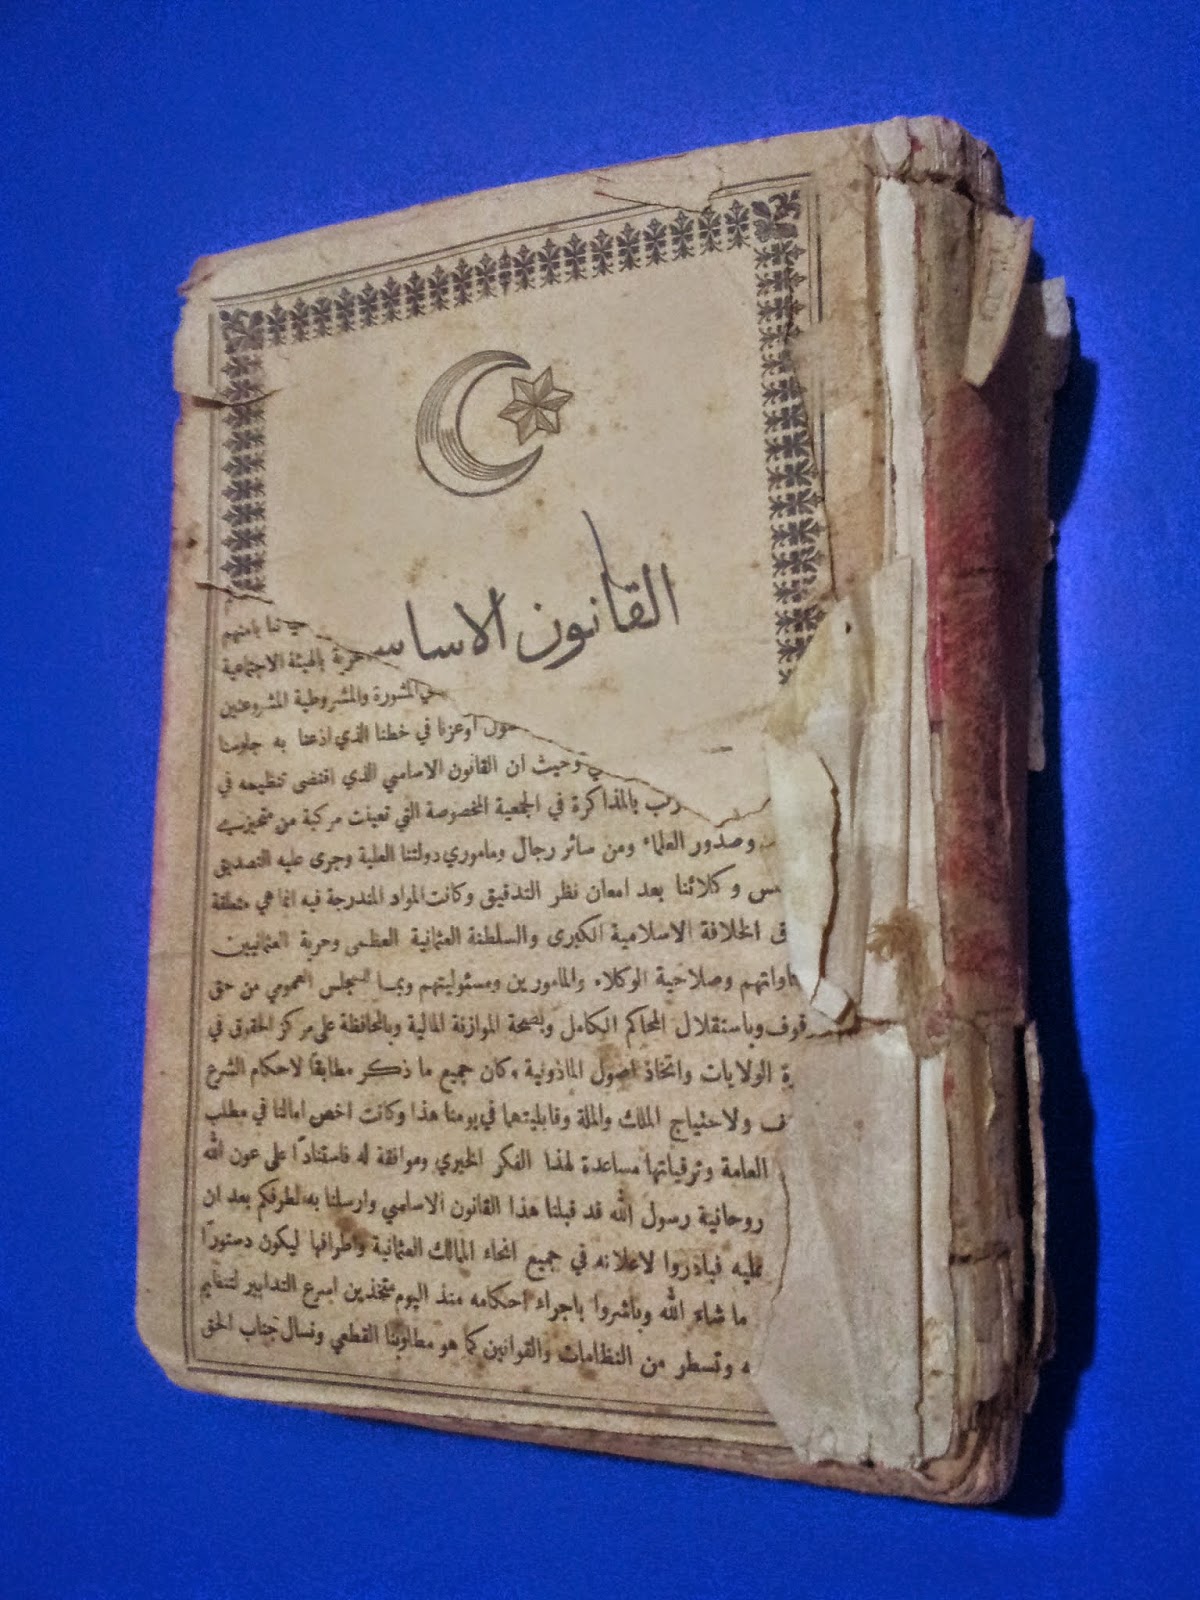 القانون الاساسـ
نا بامنهم
حرية بالهيئة الاجتماعية
المشورة والمشروطية المشروعتين
اوعزنا في خطنا الذي اذعنا به جلوسنا
وحيث ان القانون الاساسي الذي اقتضى تنظيمه في
بالمذاكرة في الجمعية المخصوصة التي تعينت مركبة من متحيزي
وصدور العلماء ومن سائر رجال وماموري دولتنا العلية وجرى عليه التصديق
وكلائنا بعد امعان نظر التدقيق وكانت المواد المندرجة فيه انما هي متعلقة
الخلافة الاسلامية الكبرى والسلطنة العثمانية العظمى وحرية العثمانيين
اواتهم وصلاحية الوكلاء والمامورين ومسئوليتهم وبما للمجلس العمومي من حق
قوف وباستقلال المحاكم الكامل وبصحة الموازنة المالية وبالمحافظة على مركز الحقوق في
الولايات واتخاذ اصول الماذونية وكان جميع ما ذكر مطابقًا لاحكام الشرع
ولاحتياج الملك والملة وقابليتهما في يومنا هذا وكانت اخص امالنا في مطلب
العامة وترقياتها مساعدة لهذا الفكر الخيري وموافقة له فاستنادًا على عون الله
روحانية رسول الله قد قبلنا هذا القانون الاساسي وارسلنا به لطرفكم بعد ان
عليه فبادروا لاعلانه في جميع انحاء الممالك العثمانية واطرافها ليكون دستورًا
ما شاء الله وباشروا باجراء احكامه منذ اليوم متخذين اسرع التدابير لتنظيم
وتسطر من النظامات والقوانين كما هو مطلوبنا القطعي ونسال جناب الحق